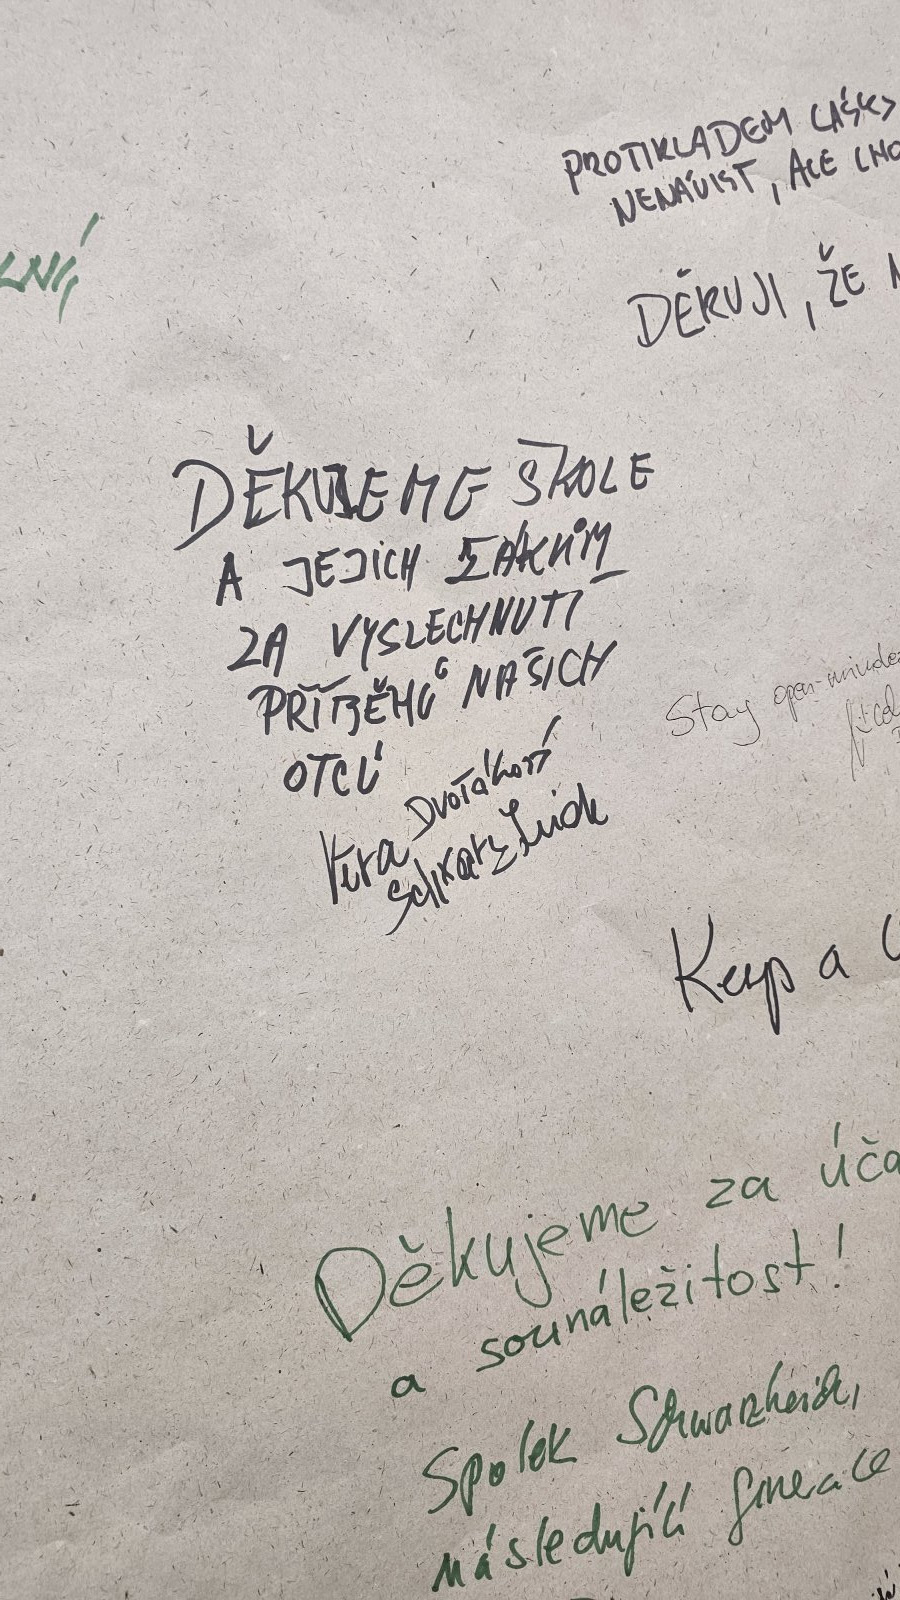 PROTIKLADEM LÁSKY
NENÁVIST, ALE LHO
LNÍ,
DĚKUJI, ŽE N
DĚKUJEME ŠKOLE
A JEJICH ŽÁKŮM
ZA VYSLECHNUTÍ
PŘÍBĚHŮ NAŠICH
OTCŮ
Věra Dvořáková
Stay open-minded
Keep a
Děkujeme za úča
a sounáležitost!
Spolek Schwarzheide,
následující generace